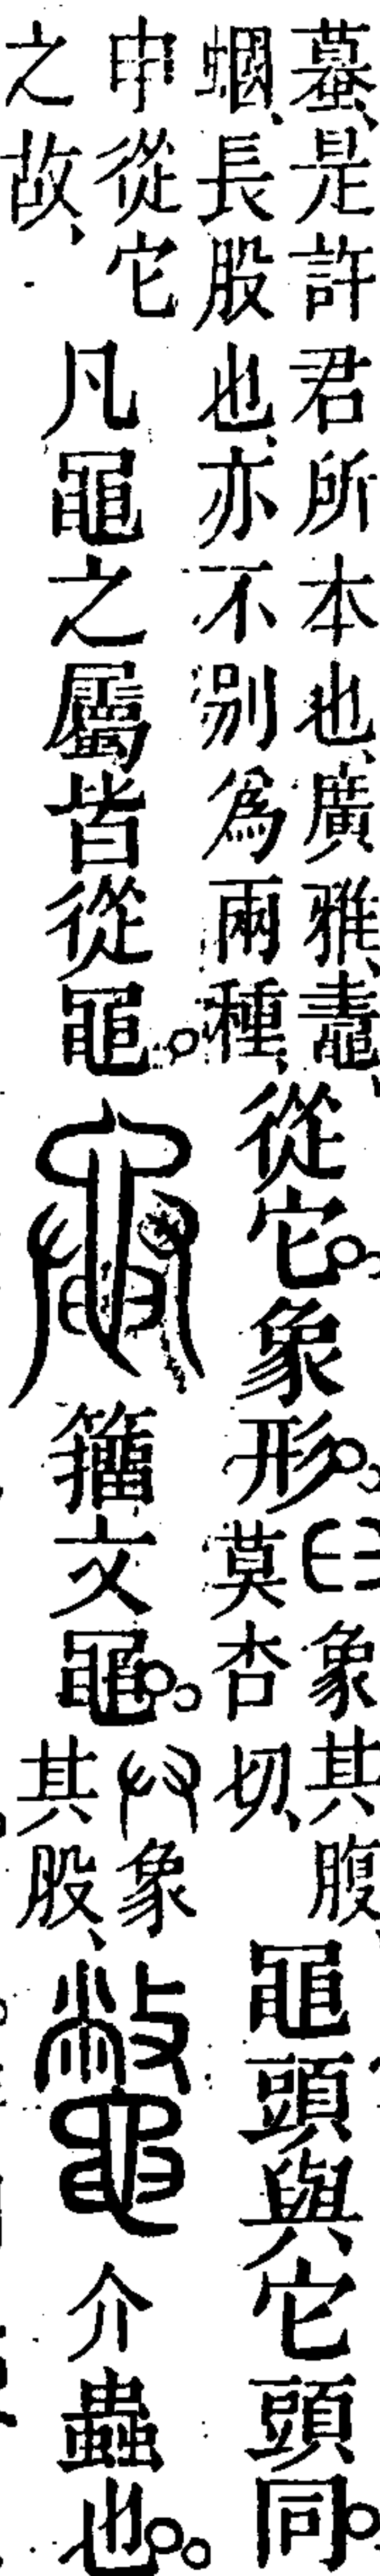 蟇、是許君所本也、廣雅、鼃、
蟈、長股也、亦不別爲兩種、
從它。象形。
象其腹、
莫杏切、
黽頭與它頭同。
申從它
之故、
凡黽之屬皆從黽。
籒文黽。
象
其股、
鼈
介蟲也。